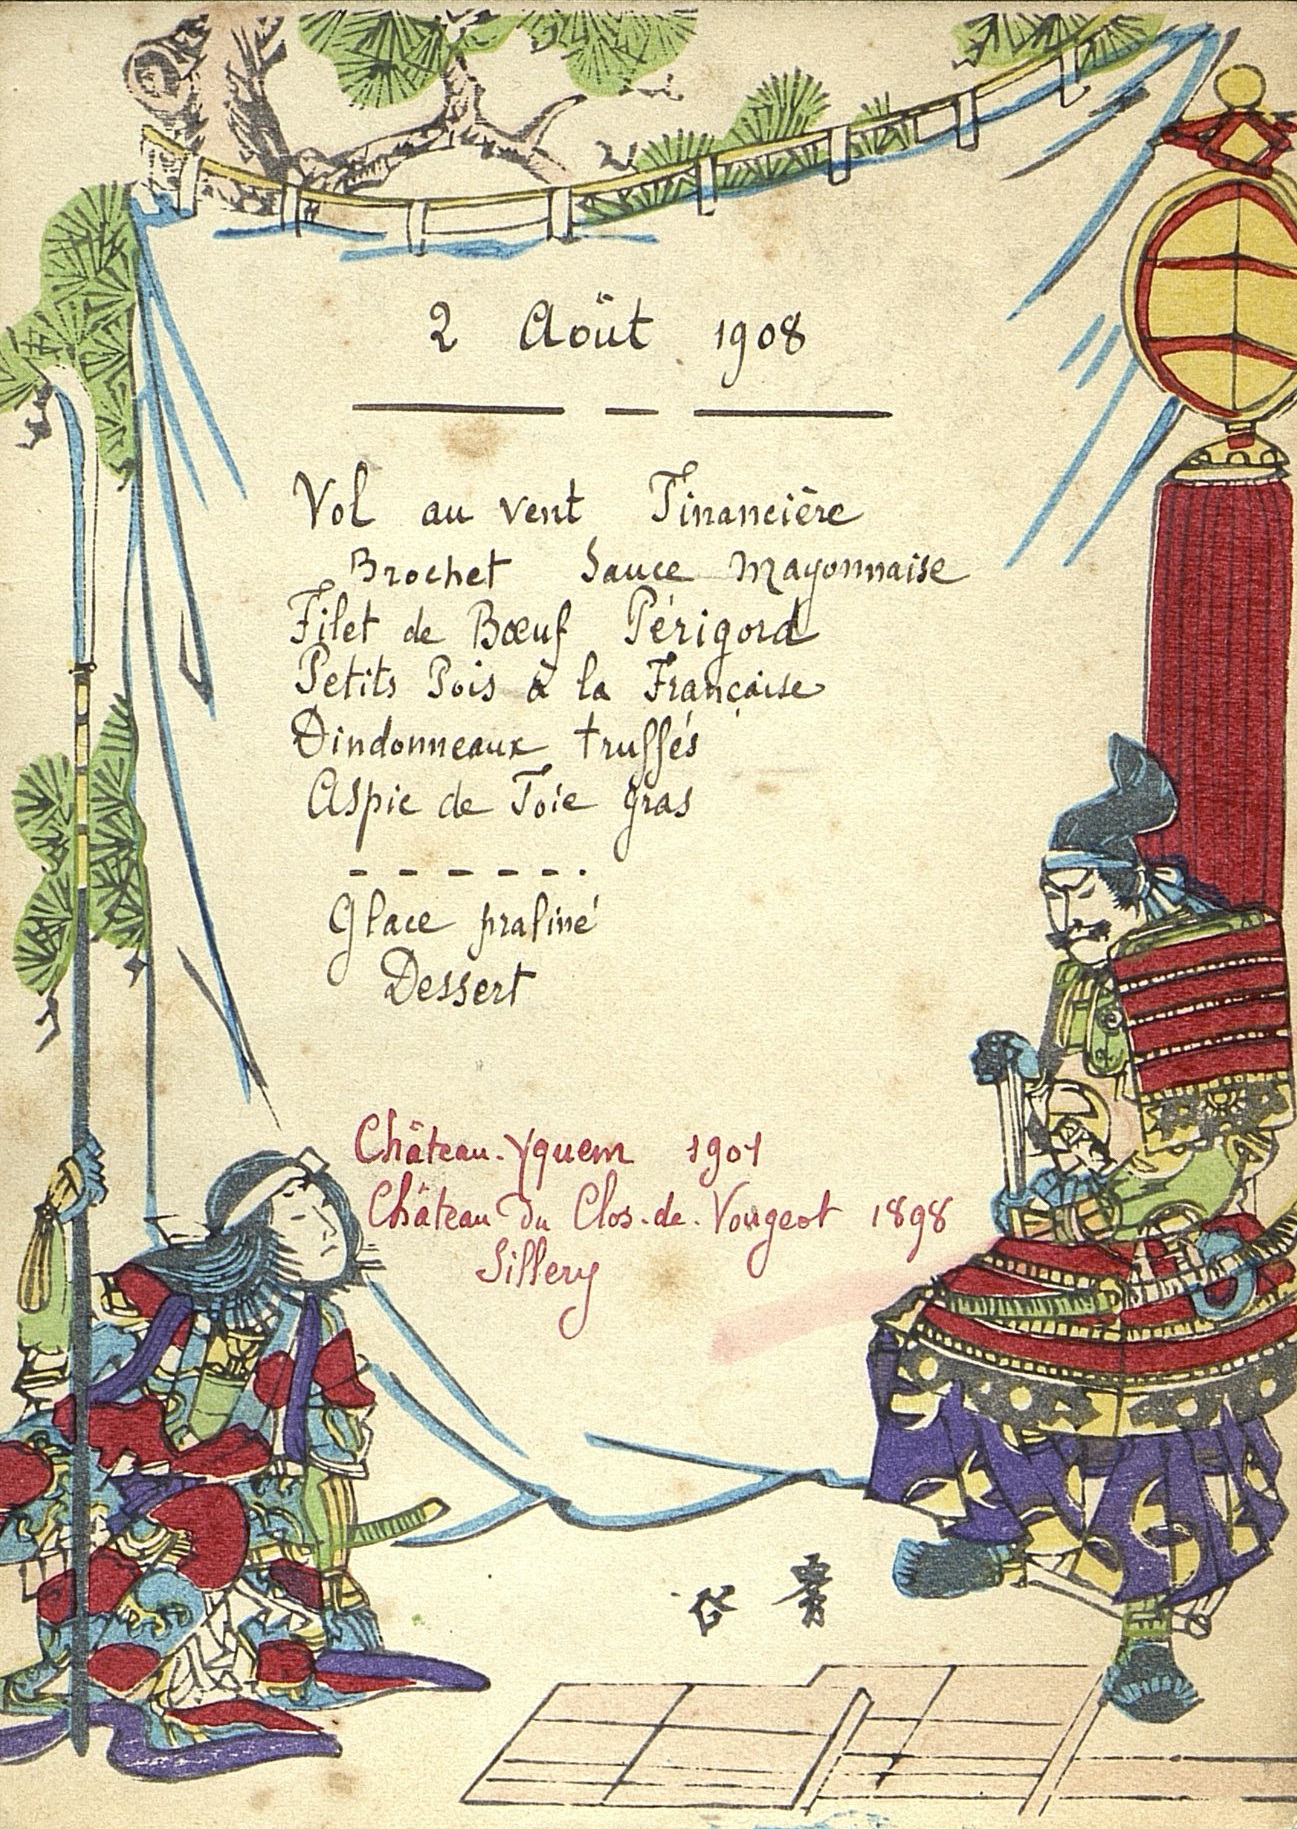 2 Août 1908
Vol au vent Financière
Brochet Sauce Mayonnaise
Filet de Bœuf Périgord
Petits Pois à la Française
Dindonneaux truffés
Aspic de Foie gras
Glace praliné
Dessert
Château-Yquem 1901
Château du Clos-de-Vougeot 1898
Sillery